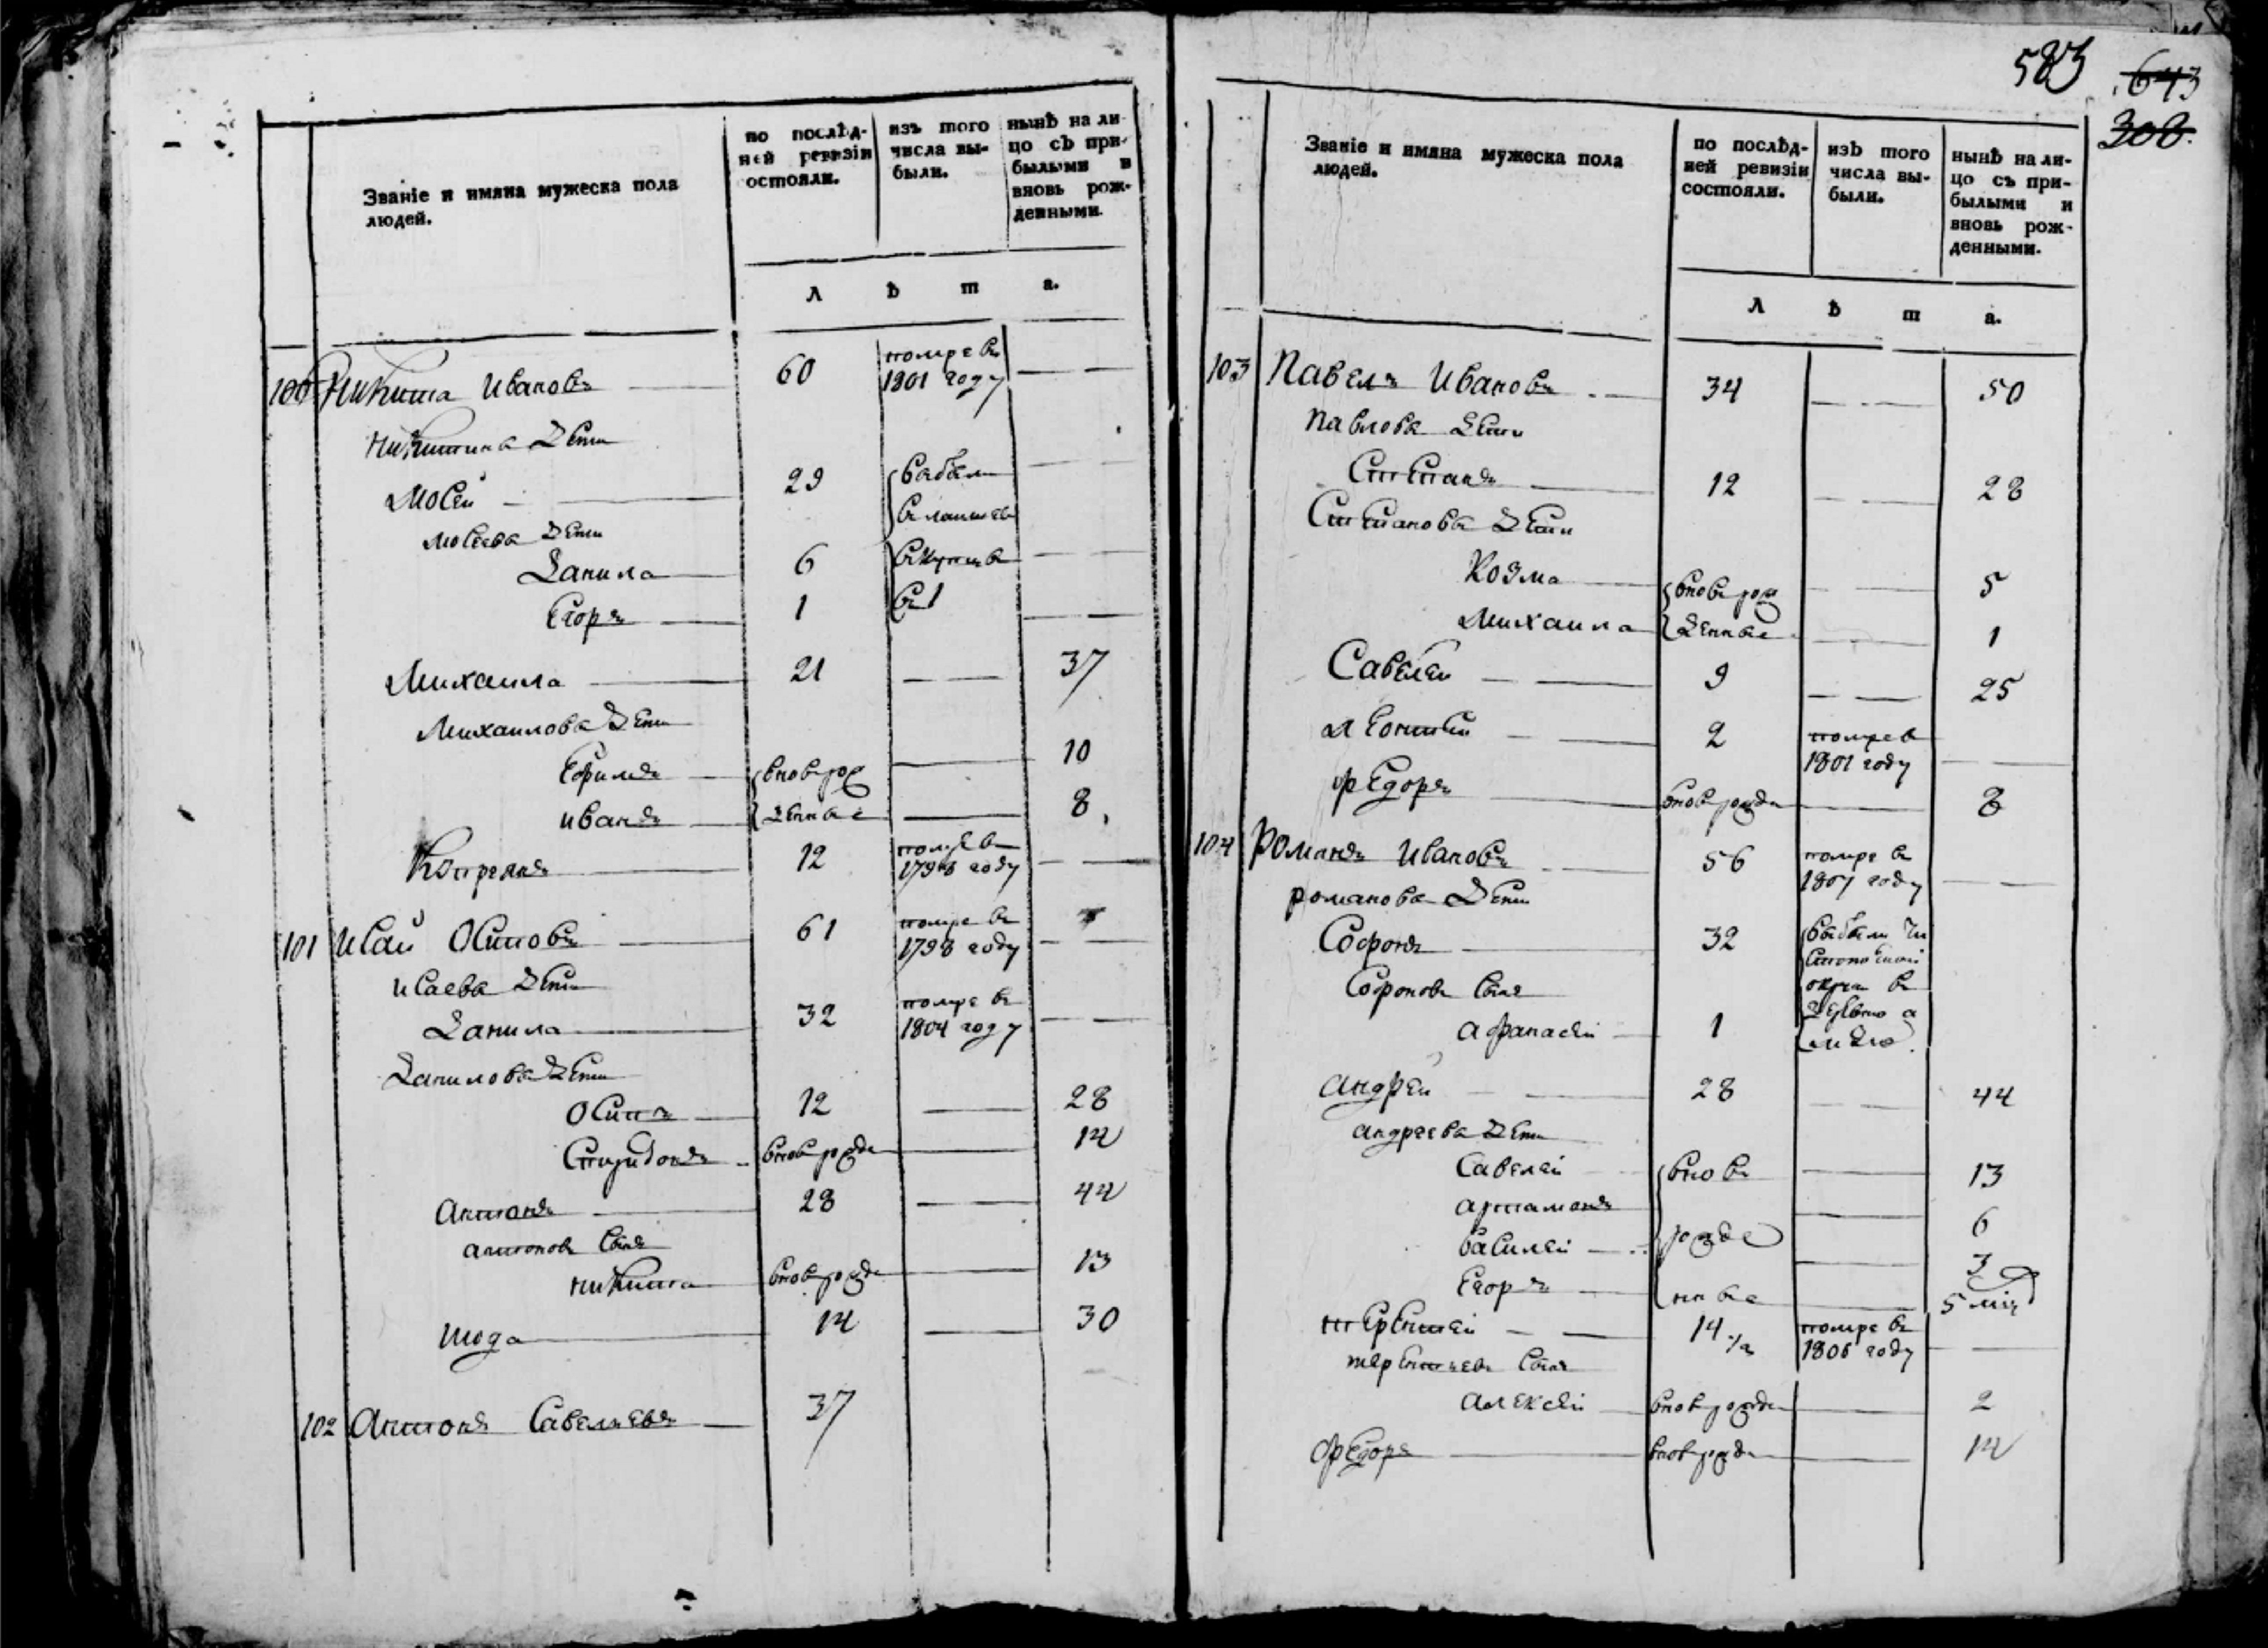 Званіе и имяна мужеска пола
людей.
по послѣд-
ней ревизіи
остояли.
изъ того
числа вы-
были.
нынѣ на ли-
цо съ при-
былыми и
вновь рож-
денными.
л ѣ т а.
100 Никита Ивановъ 60 помре въ
1801 году
Никитина дети
Мосей 29 выбыли
Мосеева дети
Данила 6
Егоръ 1
Михаила 21 37
Михаилова дети
Ефимъ вновь рож 10
Иванъ денные 8
Копреянъ 12 помре въ
1798 году
101 Исай Осиповъ 61 помре въ
1798 году
Исаева дети
Данила 32 помре въ
1804 году
Данилова дети
Осипъ 12 28
Спиридонъ вновь рожде 12
Антонъ 28 44
Антоновъ сынъ
Никита вновь рожде 13
14 30
102 Антонъ Савельевъ 37
583
643
308.
Званіе и имяна мужеска пола
людей.
по послѣд-
ней ревизіи
состояли.
изъ того
числа вы-
были.
нынѣ на ли-
цо съ при-
былыми и
вновь рож-
денными.
л ѣ т а.
103 Павелъ Ивановъ 34 50
Павлова дети
Степанъ 12 28
Степанова дети
Козма вновь рож 5
Михаила денные 1
Савелей 9 25
Леонтей 2 помре въ
1801 году
Федоръ вновь рожде 8
104 Романъ Ивановъ 56 помре въ
1807 году
Романова дети
Софонъ 32 выбыли
Софоновъ сынъ
Афанасей 1
Андрей 28 44
Андреева дети
Савелей вновь 13
Артамонъ 6
Василей рожде 3
Егоръ нные 5 мѣц
Терентей 14 помре въ
1806 году
Терентьевъ сынъ
Алексей вновь рожде 2
Федоръ вновь рожде 12